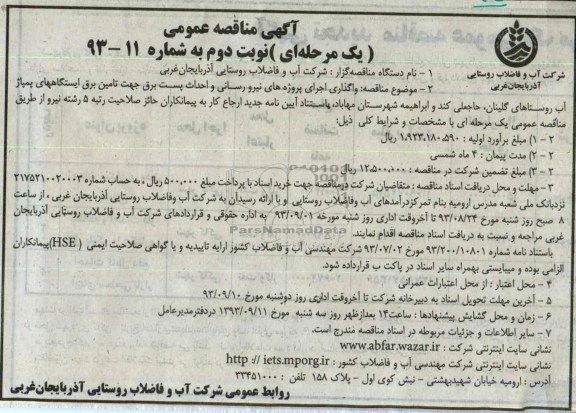 آگهی مناقصه عمومی
( یک مرحله‌ای )نوبت دوم به شماره ۱۱ – ۹۳
شرکت آب و فاضلاب روستایی
آذربایجان‌غربی
۱ - نام دستگاه مناقصه‌گزار : شرکت آب و فاضلاب روستایی آذربایجان‌غربی
۲ - موضوع مناقصه: واگذاری اجرای پروژه های نیرو رسانی و احداث پست برق جهت تامین برق ایستگاههای پمپاژ
آب روستاهای گلینان، حاجلی کند و ابراهیمه شهرستان مهاباد، باستناد آیین نامه جدید ارجاع کار به پیمانکاران حائز صلاحیت رتبه ۵ رشته نیرو از طریق
مناقصه عمومی یک مرحله ای با مشخصات و شرایط کلی ذیل:
۲ - ۱) مبلغ برآورد اولیه : ۱،۹۲۳،۱۸۰،۵۹۰ ریال
۲ - ۲) مدت پیمان : ۴ ماه شمسی
۲ - ۳) مبلغ تضمین شرکت در مناقصه : ۱۲،۵۰۰،۰۰۰ ریال
۳ - مهلت و محل دریافت اسناد مناقصه : متقاضیان شرکت درمناقصه جهت خرید اسناد با پرداخت مبلغ ۵۰۰،۰۰۰ ریال ، به حساب شماره ۲۱۷۵۲۱۰۰۲۰۰۰۳
نزدبانک ملی شعبه مدرس ارومیه بنام تمرکزدرآمدهای آب وفاضلاب روستایی و با ارائه رسیدآن به شرکت آب وفاضلاب روستایی آذربایجان غربی ، از ساعت
۸ صبح روز شنبه مورخ ۹۳/۰۸/۲۴ تا آخروقت اداری روز شنبه مورخه ۹۳/۰۹/۰۱ به اداره حقوقی و قراردادهای شرکت آب و فاضلاب روستایی آذربایجان
غربی مراجعه و نسبت به دریافت اسناد مناقصه اقدام نمایند.
باستناد نامه شماره ۹۳/۲۰۰/۱۰۸۰۱ مورخ ۹۳/۰۷/۰۲ شرکت مهندسی آب و فاضلاب کشور ارایه تاییدیه و یا گواهی صلاحیت ایمنی ( HSE )پیمانکاران
الزامی بوده و میبایستی بهمراه سایر اسناد در پاکت ب قرارداده شود.
۴ - محل اعتبار : از محل اعتبارات عمرانی
۵ - آخرین مهلت تحویل اسناد به دبیرخانه شرکت تا آخروقت اداری روز دوشنبه مورخ ۹۳/۰۹/۱۰
۶ - زمان و محل گشایش پیشنهادها : ساعت۱۴ بعدازظهر روز سه شنبه مورخ ۱۳۹۳/۰۹/۱۱ دردفترمدیرعامل
۷ - سایر اطلاعات و جزئیات مربوطه در اسناد مناقصه مندرج است.
نشانی سایت اینترنتی شرکت : www.abfar.wazar.ir
نشانی سایت اینترنتی شرکت مهندسی آب و فاضلاب کشور : http:// iets.mporg.ir
آدرس : ارومیه خیابان شهیدبهشتی – نبش کوی اول - پلاک ۱۵۸ تلفن : ۳۳۴۵۱۰۰۰
روابط عمومی شرکت آب و فاضلاب روستایی آذربایجان‌غربی
ParsNamadData